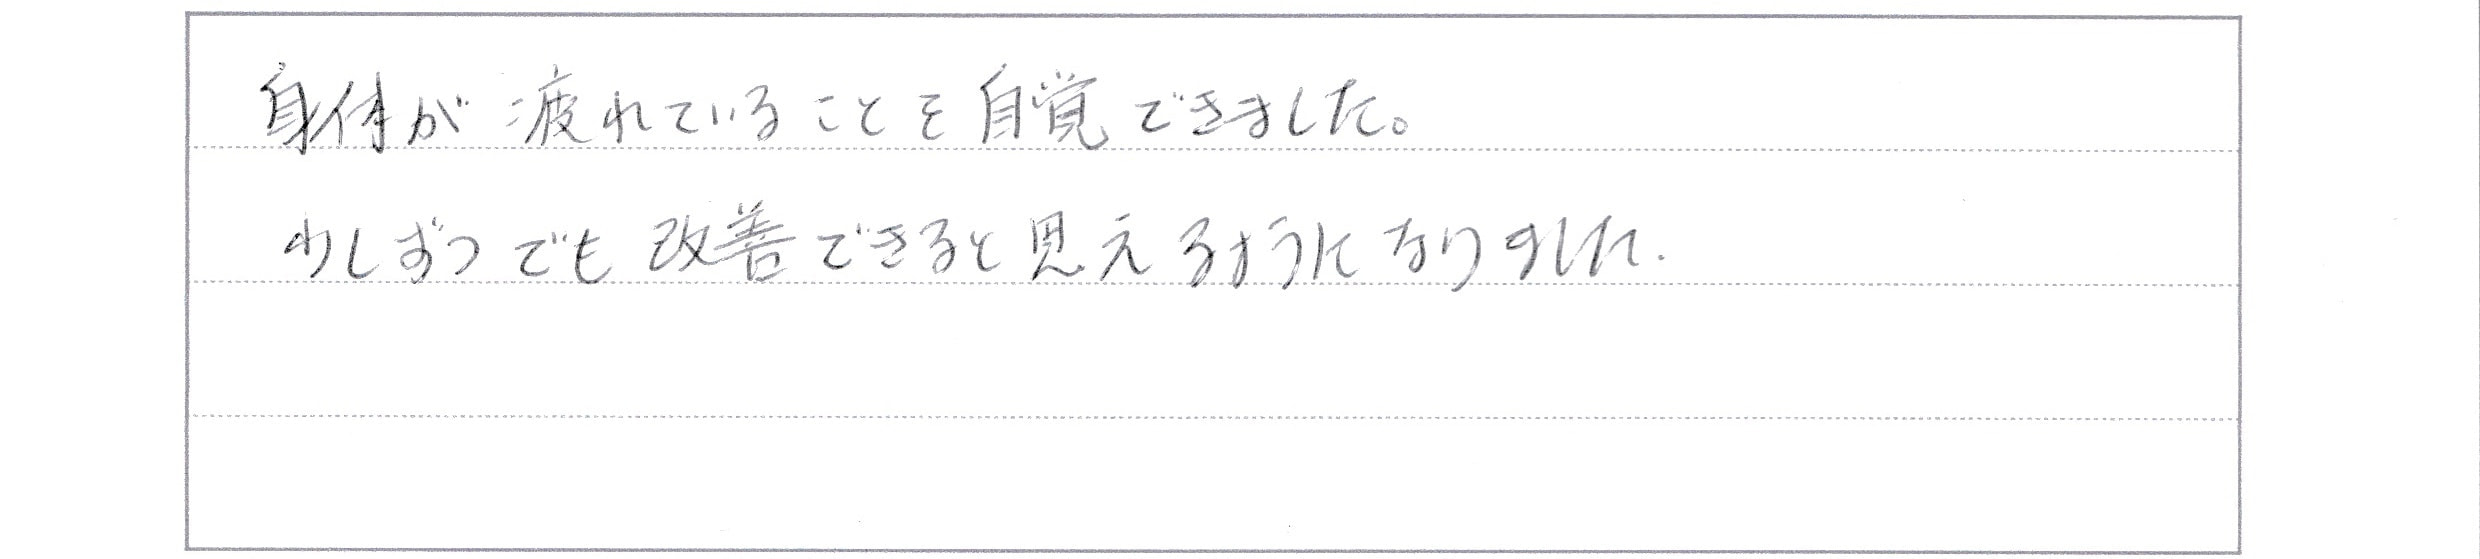 身体が疲れていることを自覚できました。
少しずつでも改善できると思えるようになりました.